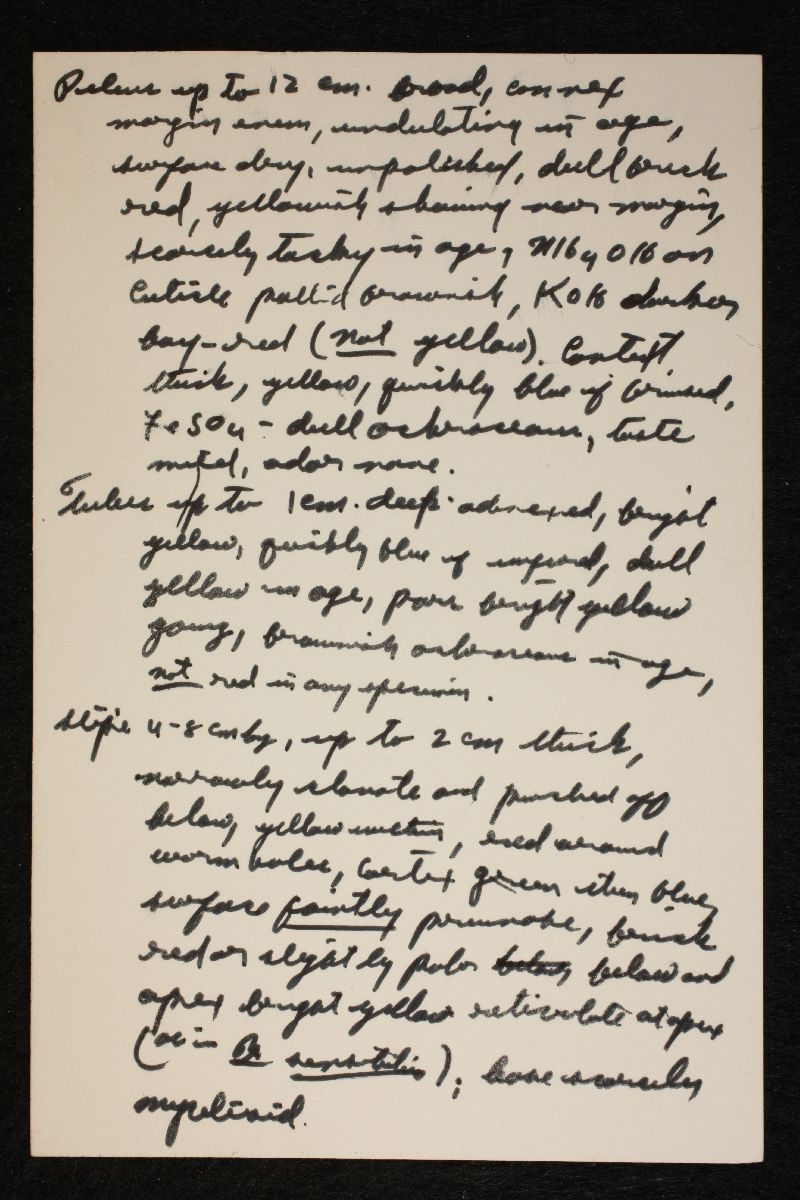 Pileus up to 12 cm. broad, convex
margin even, undulating in age,
surface dry, unpolished, dull brick
red, yellowish staining near margin,
scarcely tacky in age, NH4OH on
cuticle pallid brownish, KOH darker
bay-red (not yellow). Context
thick, yellow, quickly blue if bruised,
FeSO4 - dull ochraceous, taste
mild, odor none.
Tubes up to 1 cm. deep adnexed, bright
yellow, quickly blue if injured, dull
yellow in age, pores bright yellow
young, brownish ochraceous in age,
not red in any specimen.
Stipe 4-8 cm long, up to 2 cm thick,
narrowly clavate and pinched off
below, yellow within, red around
worm holes, cortex green then blue,
surface faintly pruinose, brick
red or slightly paler below and
apex bright yellow reticulate at apex
(as in B. sensibilis); base scarcely
mycelioid.